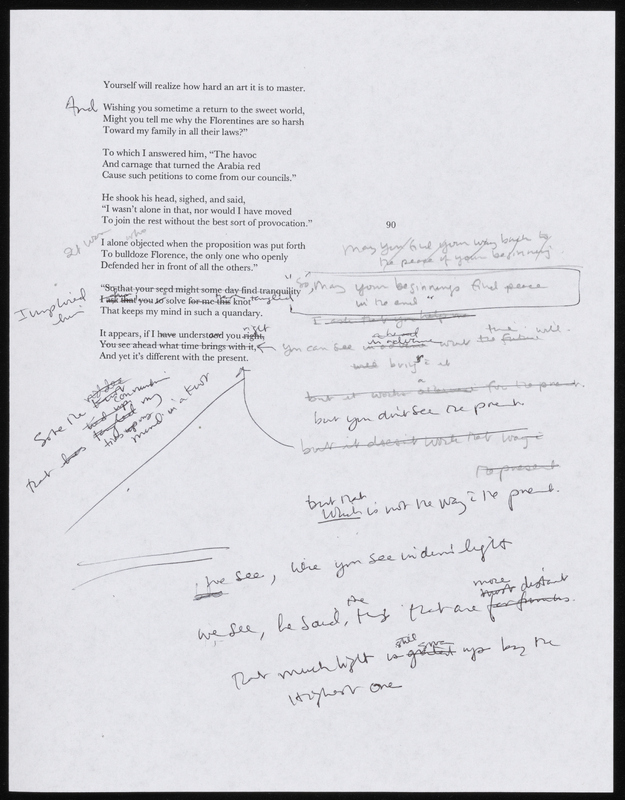 Yourself will realize how hard an art it is to master.
And
Wishing you sometime a return to the sweet world,
Might you tell me why the Florentines are so harsh
Toward my family in all their laws?”
To which I answered him, “The havoc
And carnage that turned the Arabia red
Cause such petitions to come from our councils.”
He shook his head, sighed, and said,
“I wasn’t alone in that, nor would I have moved
To join the rest without the best sort of provocation.”
90
who
I alone objected when the proposition was put forth
To bulldoze Florence, the only one who openly
Defended her in front of all the others.”
May you find your way back to
the peace of your beginning
“So, may your beginnings find peace
in the end”
“So that your seed might some day find tranquility
I ask that you to solve for me this knot
That keeps my mind in such a quandary.
I implored
him
I ask that you help me
It appears, if I have understood you right,
You see ahead what time brings with it,
And yet it’s different with the present.
right
ahead
time will
You can see what the future
bring
Solve the
that has
mind in a knot
but you don't see the present.
but it doesn't work that way
to present
but that
Which is not the way the present.
We see, like you see in dim light
we see, he said, the that are
more distant
still
That much light is up by the
Highest one